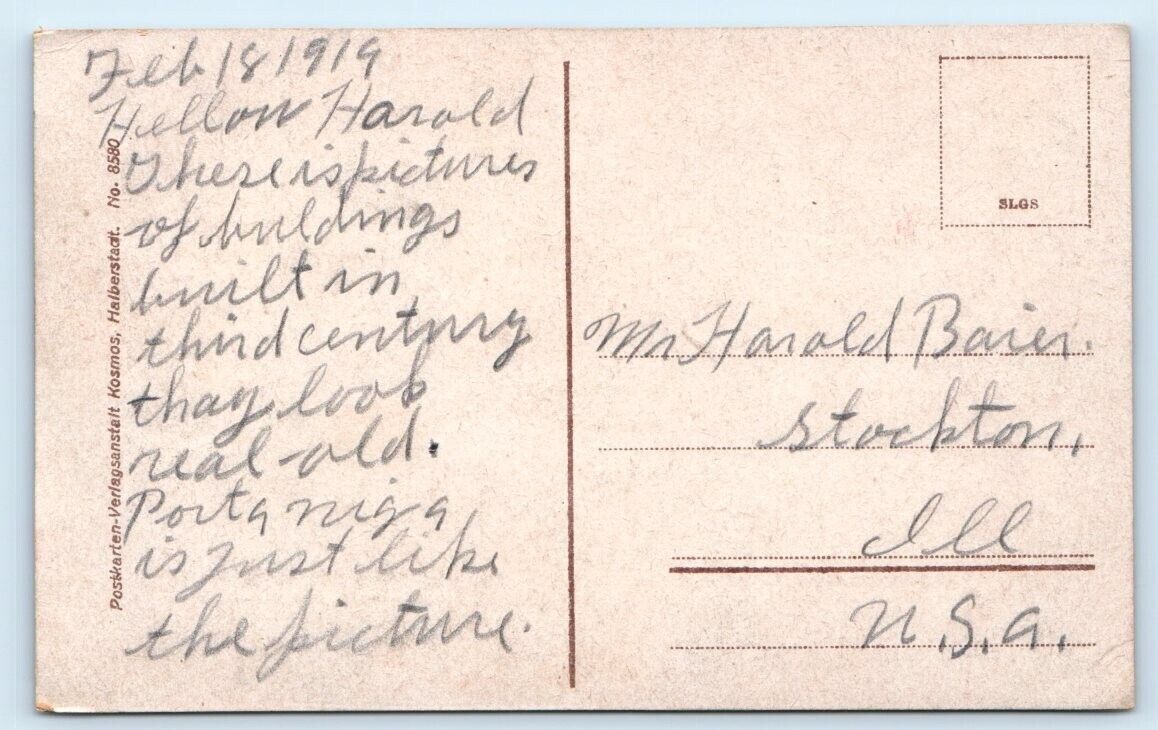 Feb 18 1919
Hellow Harold
Theire is pictures
of buldings
built in
third century
thay look
real old.
Porta niga
is just like
the picture.
Postkarten-Verlagsanstalt Kosmos, Halberstadt. No. 8580
SLGS
Mr Harold Baier.
Stockton,
Ill
U.S.A.